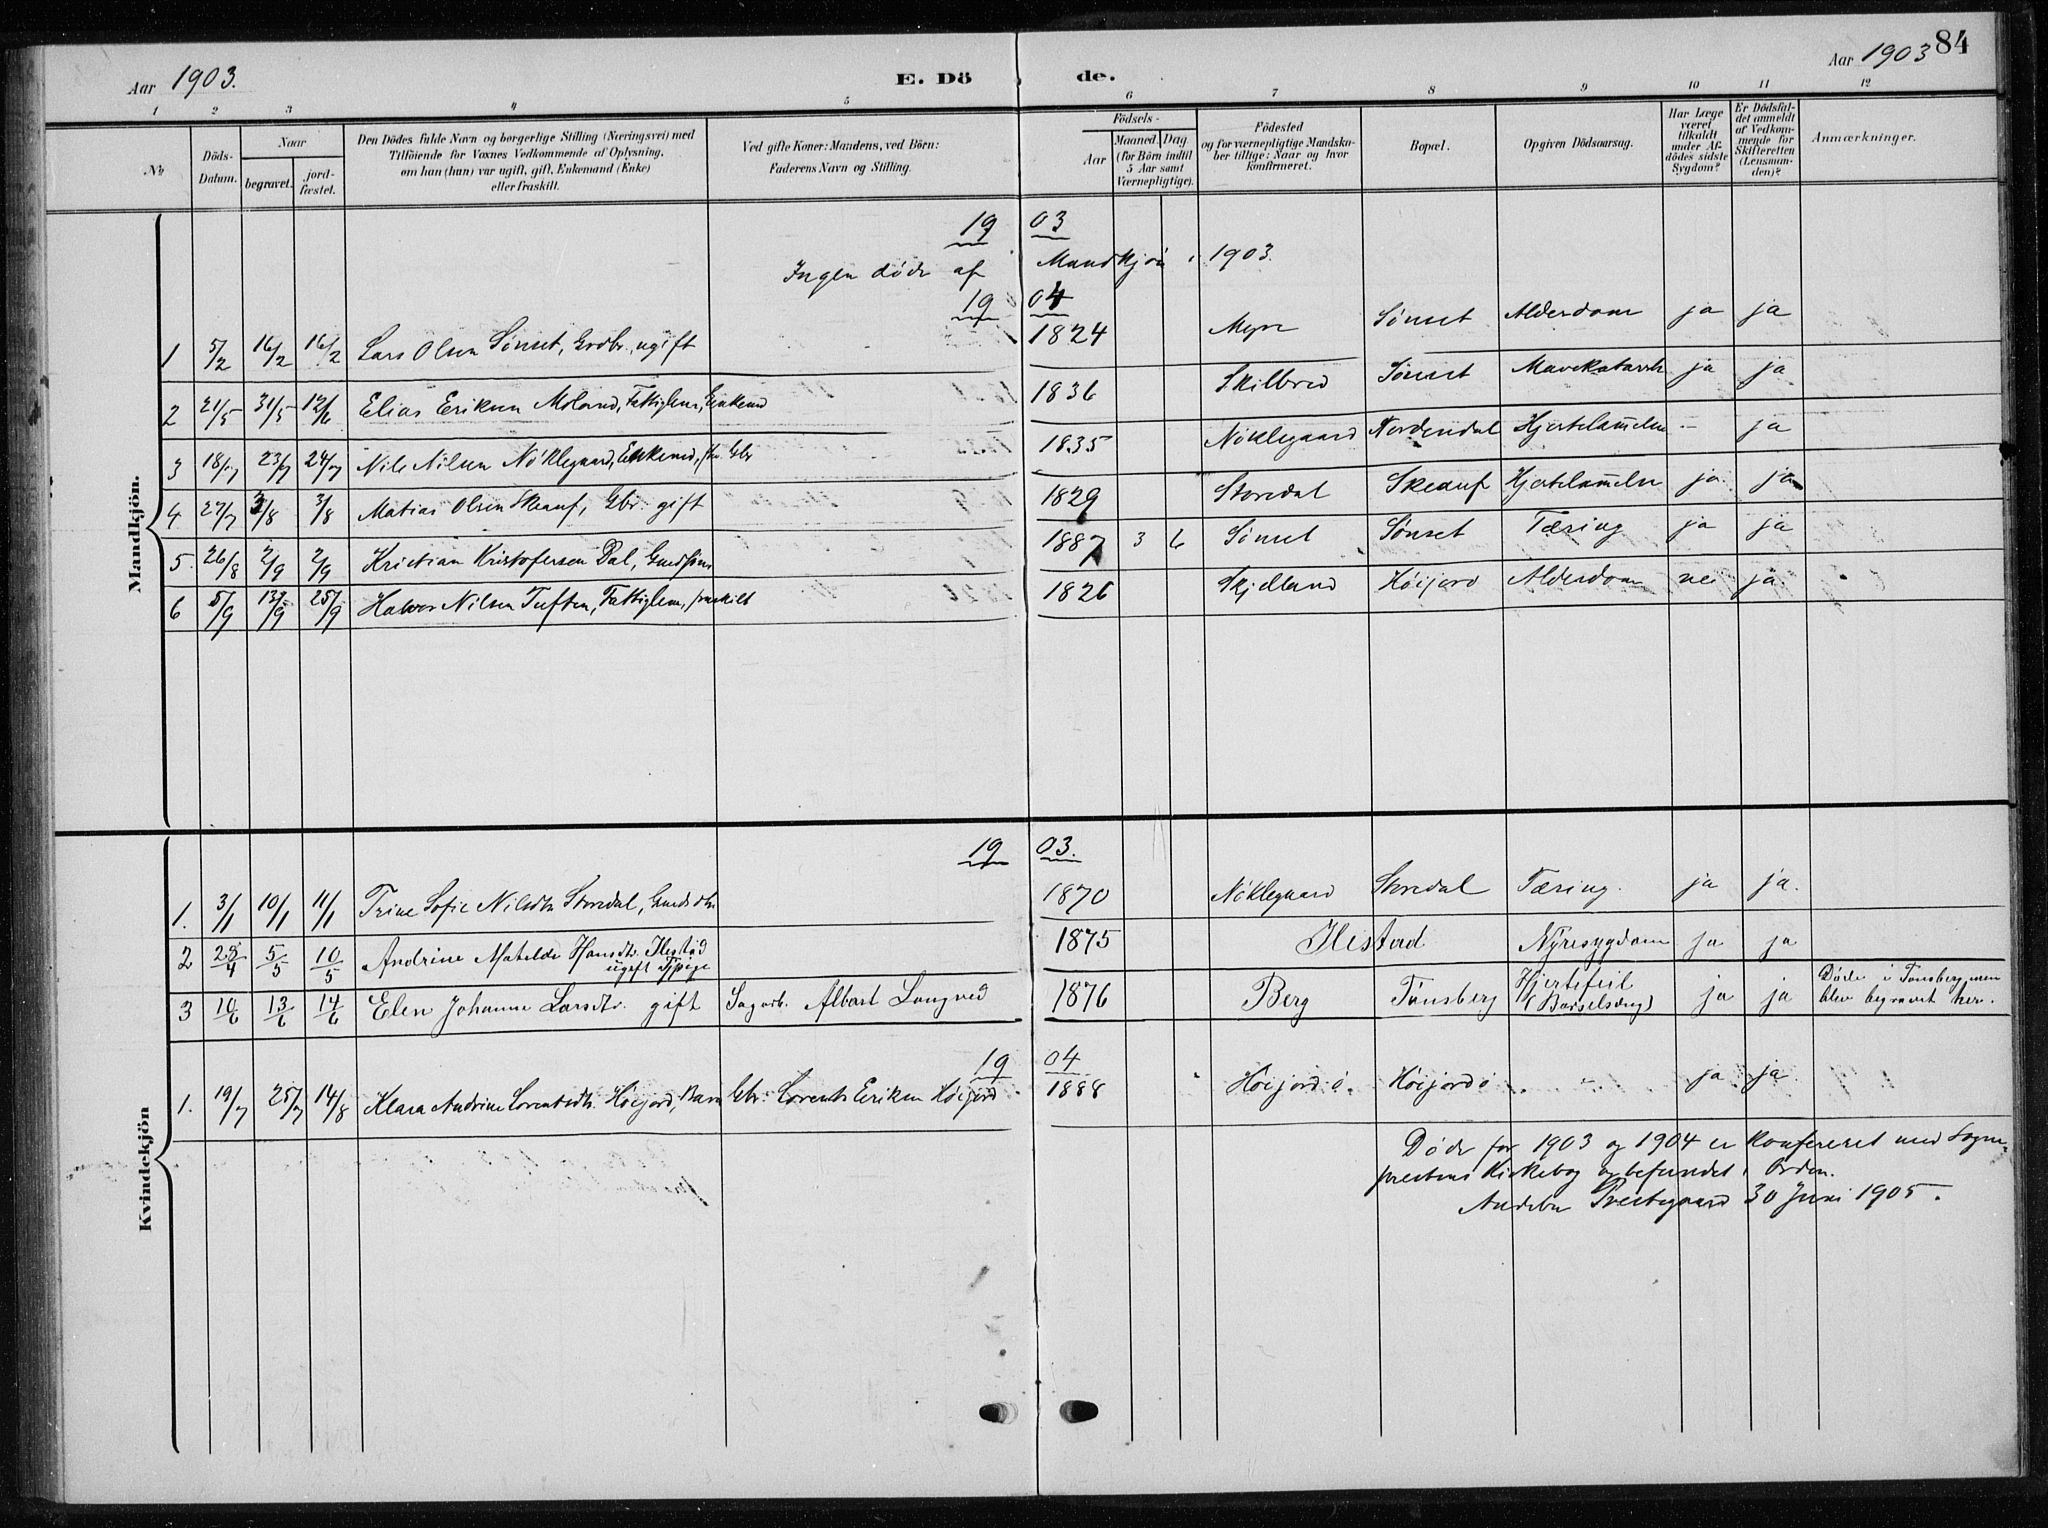 84
Aar 1903. E. Dö de. Aar 1903
1 2 3 4 5 6 7 8 9 10 11 12
No
Döds-Datum.
Naar
begravet.
jord-fæstet.
Den Dödes fulde Navn og borgerlige Stilling (Næringsvei) med
Tilföiende for Voxnes Vedkommende af Oplysning,
om han (hun) var ugift, gift, Enkemand (Enke)
eller fraskilt.
Ved gifte Koner: Mandens, ved Börn:
Faderens Navn og Stilling.
Födsels-
Aar
Maaned. Dag.
(for Börn indtil
5 Aar samt
Værnepligtige).
Födested
og for værnepligtige Mandska-
ber tillige: Naar og hvor
konfirmeret.
Bopæl.
Opgiven Dödsaarsag.
Har Læge
været
tilkaldt
under Af-
dödes sidste
Sygdom?
Er Dödsfal-
det anmeldt
af Vedkom-
mende for
Skifteretten
(Lensman-
den)?
Anmærkninger.
Mandkjön.
1903
Ingen døde af Mandkjøn i 1903.
1904
1 5/2 16/2 16/2 Lars Olsen Sønset, Grdbr., ugift 1824 Myre Sønset Alderdom ja ja
2 21/5 31/5 12/6 Elias Eriksen Moland, Fattiglem, Enkemd 1836 Skilbred Sønset Mavekatarrh ja ja
3 18/7 23/7 24/7 Nils Nilsen Nøklegaard, Enkemd, Gbr 1835 Nøklegaard Nordendal Hjertelam̄else - ja
4 27/7 3/8 3/8 Matias Olsen Skeauf, Gbr. gift 1829 Storedal Skeauf Hjertelam̄else ja ja
5. 26/8 2/9 2/9 Kristian Kristofersen Dal, Grdssøn 1887 3 6 Sønset Sønset Tæring ja ja
6 5/9 13/9 25/9 Halvor Nilsen Tuften, Fattiglem, fraskilt 1826 Skjelland Høijord Alderdom nei ja
Kvindekjön
1903.
1. 3/1 10/1 11/1 Trine Sofie Nilsdtr Storedal, Grdsdtr 1870 Nøklegaard Storedal Tæring. ja ja.
2 28/4 5/5 10/5 Andrine Matelde Hansdtr. Ilestad
ugift Tjpige 1875 Ilestad Nyresygdom ja ja
3 10/6 13/6 14/6 Elen Johanne Larsdtr. gift Sagarb. Albert Langved 1876 Berg Tønsberg Hjertefeil
(Barselseng) ja ja Døde i Tønsberg men
blev begravet her.
1904
1. 19/7 25/7 14/8 Klara Andrine Lorentsdtr. Høijord, Barn Gbr. Lorents Eriksen Høijord 1888 Høijord ø. Høijord ø ja ja
Døde for 1903 og 1904 er konfereret med Sogne-
prestens Kirkebog og befundet i Orden.
Andebu Prestegaard 30 Juni 1905.